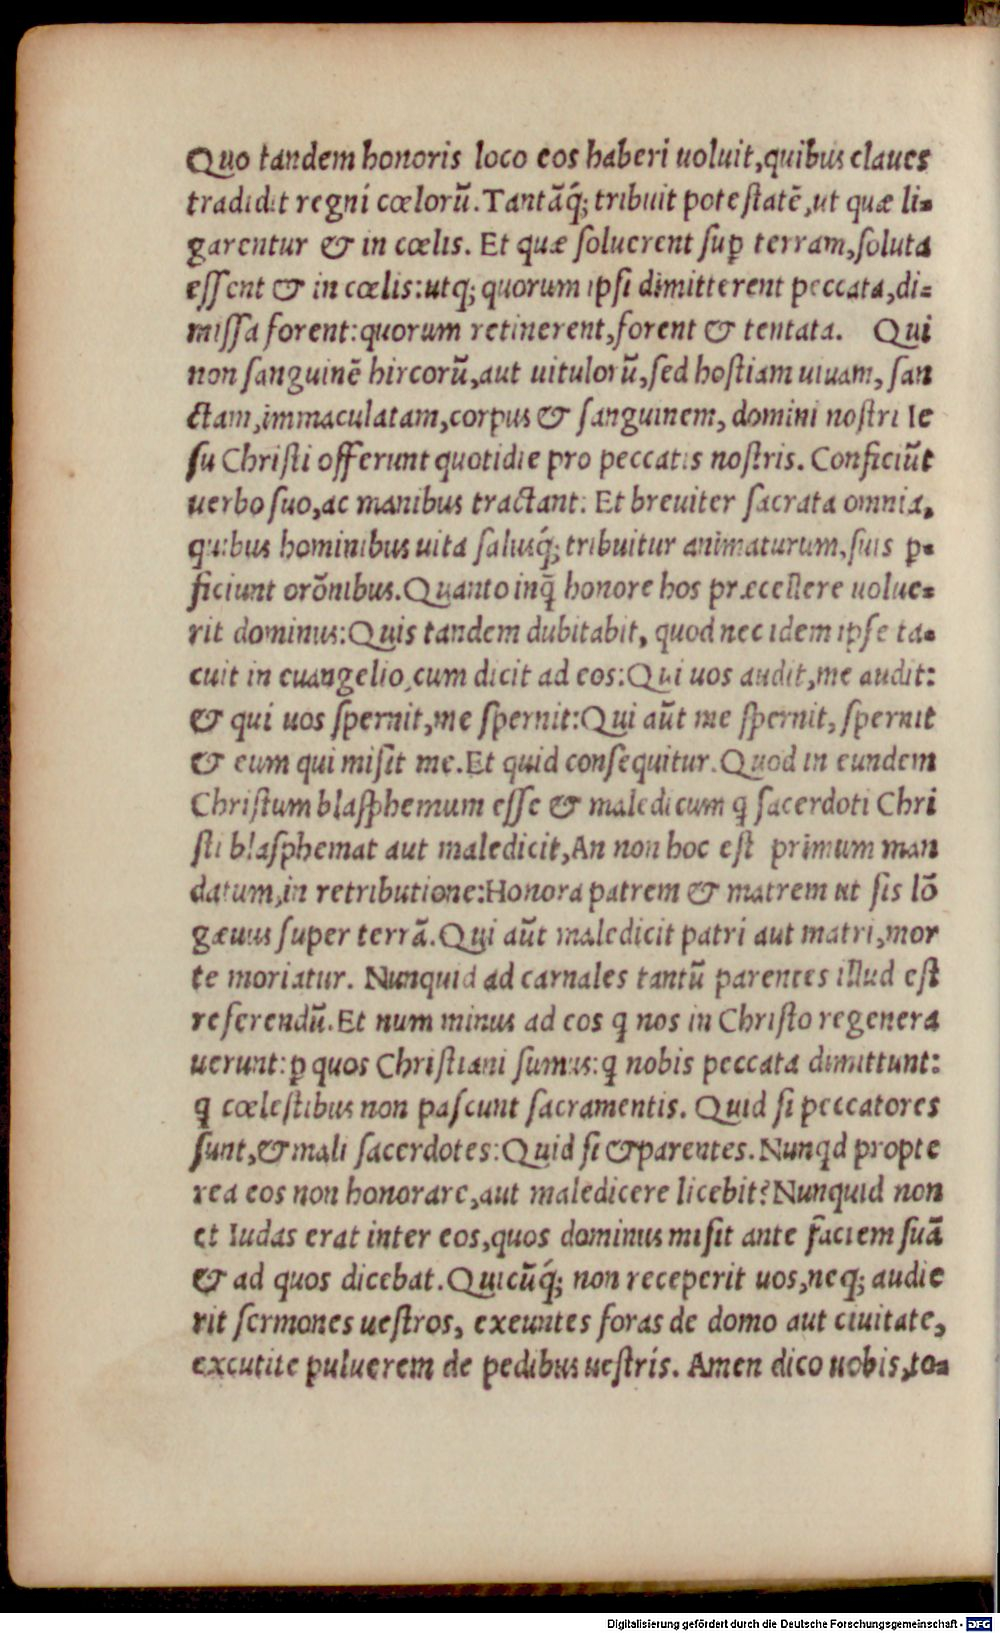 Quo tandem honoris loco eos haberi uoluit,quibus claues
tradidit regni cœlorũ.Tantãq́; tribuit poteſtatē,ut quæ li=
garentur & in cœlis. Et quæ ſoluerent ſuꝑ terram,ſoluta
eſſent & in cœlis:utq; quorum ipſi dimitterent peccata,di=
miſſa forent:quorum retinerent,forent & tentata. Qui
non ſanguinē hircorũ,aut uitulorũ,ſed hoſtiam uiuam, ſan
ctam,immaculatam,corpus & ſanguinem, domini noſtri Ie
ſu Chriſti offerunt quotidie pro peccatis noſtris. Conficiũt
uerbo ſuo,ac manibus tractant: Et breuiter ſacrata omnia,
quibus hominibus uita ſalusq́; tribuitur animaturum,ſuis ꝑ=
ficiunt orõnibus.Quanto inq̃ honore hos præcellere uolue=
rit dominus:Quis tandem dubitabit, quod nec idem ipſe ta=
cuit in euangelio,cum dicit ad eos:Qui uos audit,me audit:
& qui uos ſpernit,me ſpernit:Qui aũt me ſpernit, ſpernit
& eum qui miſit me.Et quid conſequitur.Quod in eundem
Chriſtum blaſphemum eſſe & maledicum q̃ ſacerdoti Chri
ſti blaſphemat aut maledicit,An non hoc eſt primum man
datum,in retributione:Honora patrem & matrem ut ſis lõ
gæuus ſuper terrã.Qui aũt maledicit patri aut matri,mor
te moriatur. Nunquid ad carnales tantũ parentes illud eſt
referendũ.Et num minus ad eos q̃ nos in Chriſto regenera
uerunt:ꝑ quos Chriſtiani ſumus:q̃ nobis peccata dimittunt:
q̃ cœleſtibus non paſcunt ſacramentis. Quid ſi peccatores
ſunt,& mali ſacerdotes:Quid ſi & parentes.Nunqd propte
rea eos non honorare,aut maledicere licebit?Nunquid non
et Iudas erat inter eos,quos dominus miſit ante faciem ſuã
& ad quos dicebat.Quicũq́; non receperit uos,neq; audie
rit ſermones ueſtros, exeuntes foras de domo aut ciuitate,
excutite puluerem de pedibus ueſtris. Amen dico uobis,to=
Digitalisierung gefördert durch die Deutsche Forschungsgemeinschaft - DFG